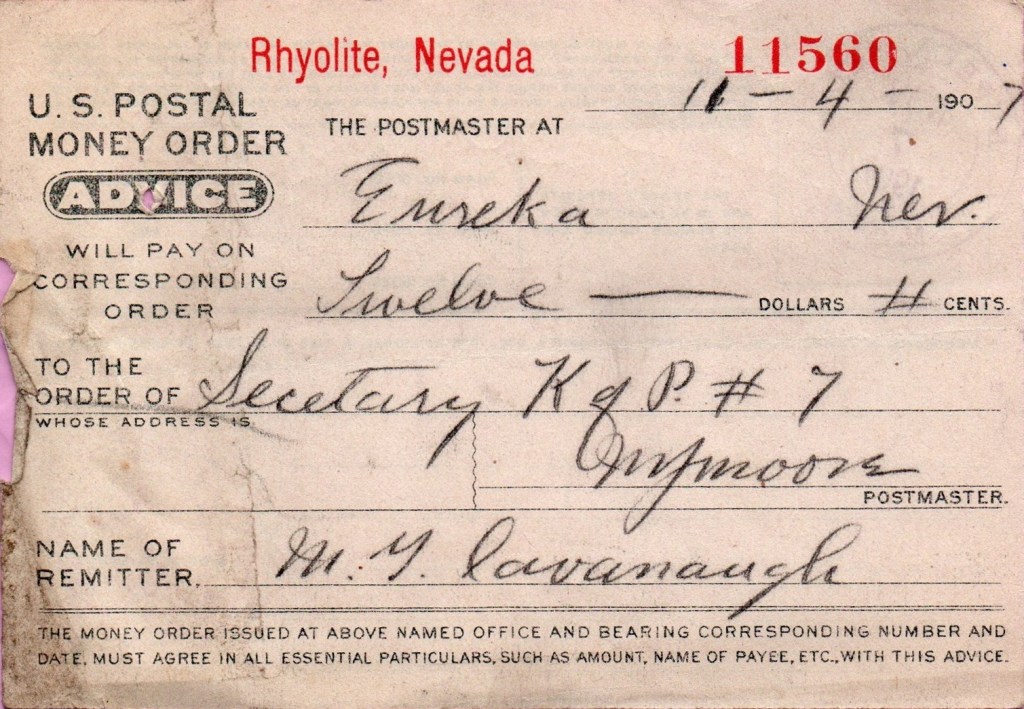 Rhyolite, Nevada 11560
11-4-1907
U. S. POSTAL
MONEY ORDER
ADVICE
WILL PAY ON
CORRESPONDING
ORDER
THE POSTMASTER AT
Eureka Nev.
Twelve — DOLLARS CENTS.
TO THE
ORDER OF Secetary K of P. # 7
WHOSE ADDRESS IS
POSTMASTER.
NAME OF
REMITTER, M. Y. Cavanaugh
THE MONEY ORDER ISSUED AT ABOVE NAMED OFFICE AND BEARING CORRESPONDING NUMBER AND
DATE, MUST AGREE IN ALL ESSENTIAL PARTICULARS, SUCH AS AMOUNT, NAME OF PAYEE, ETC., WITH THIS ADVICE.